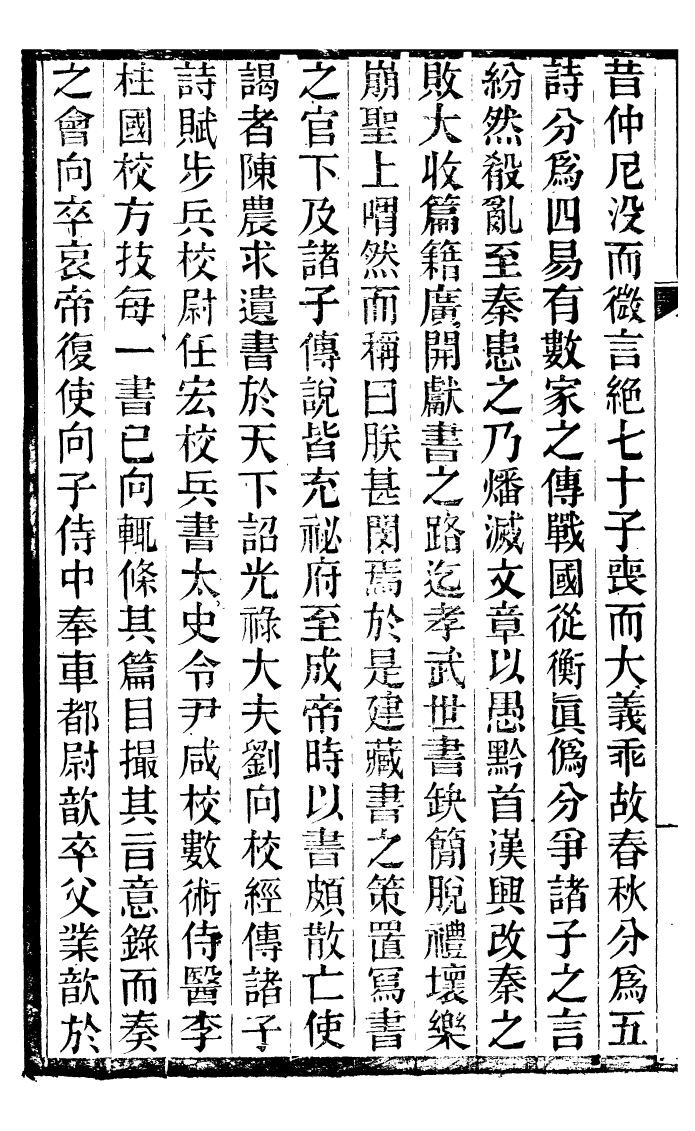 昔仲尼没而微言絕七十子喪而大義乖故春秋分爲五
詩分爲四易有數家之傳戰國從衡眞僞分爭諸子之言
紛然殽亂至秦患之乃燔滅文章以愚黔首漢興改秦之
敗大收篇籍廣開獻書之路迄孝武世書缺簡脫禮壞樂
崩聖上喟然而稱曰朕甚閔焉於是建藏書之策置寫書
之官下及諸子傳說皆充祕府至成帝時以書頗散亡使
謁者陳農求遺書於天下詔光祿大夫劉向校經傳諸子
詩賦步兵校尉任宏校兵書太史令尹咸校數術侍醫李
柱國校方技每一書已向輒條其篇目撮其㫖意錄而奏
之會向卒哀帝復使向子侍中奉車都尉歆卒父業歆於